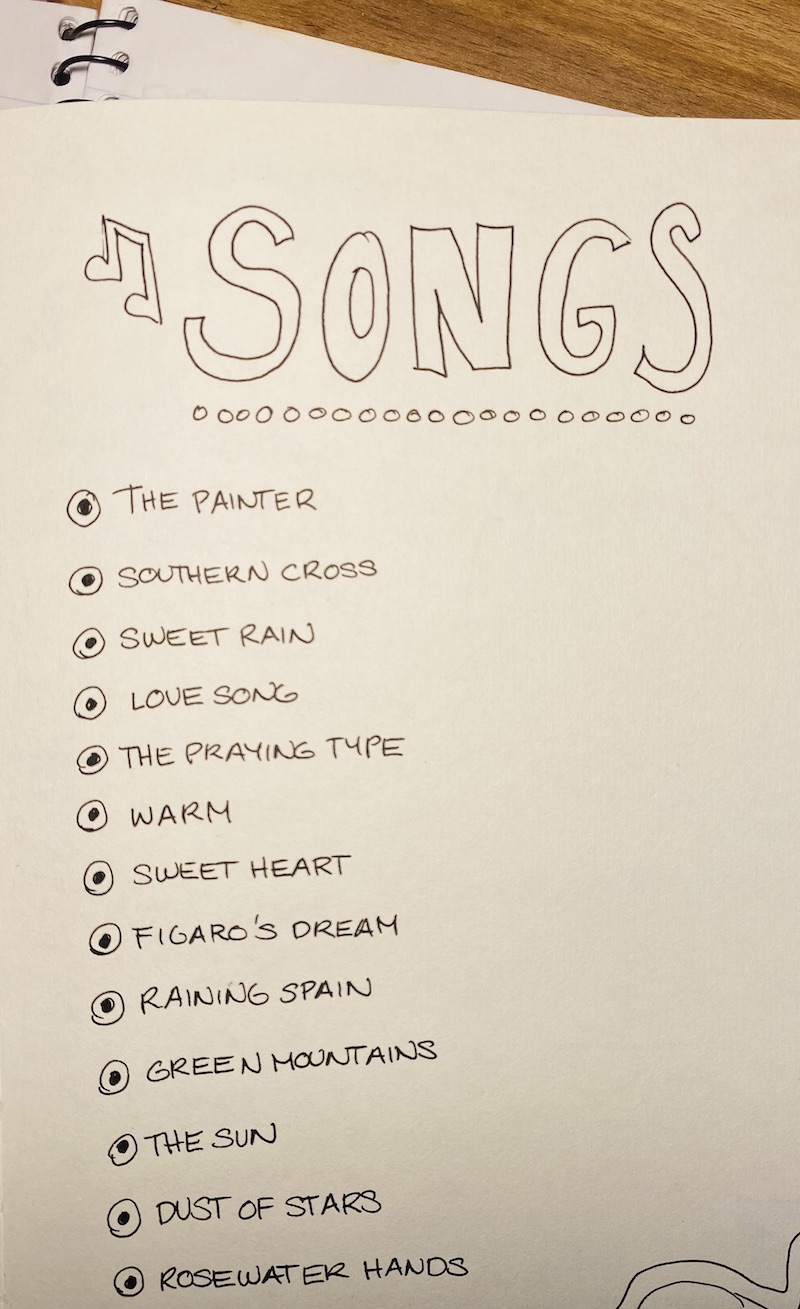 SONGS
THE PAINTER
SOUTHERN CROSS
SWEET RAIN
LOVE SONG
THE PRAYING TYPE
WARM
SWEET HEART
FIGARO'S DREAM
RAINING SPAIN
GREEN MOUNTAINS
THE SUN
DUST OF STARS
ROSEWATER HANDS